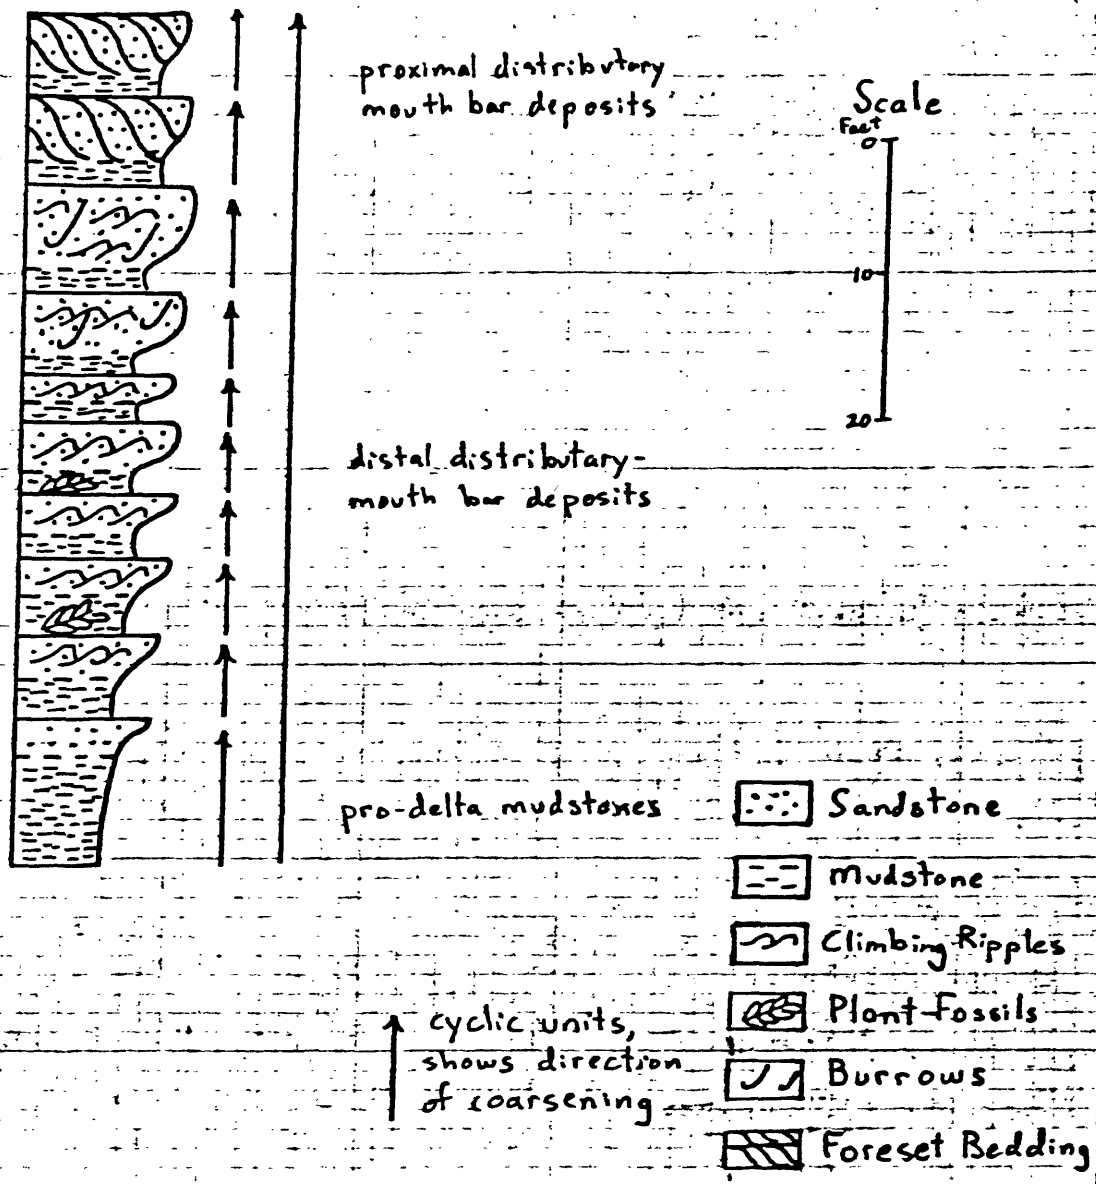 proximal distributary
mouth bar deposits
Scale
Feet
0
10
20
distal distributary-
mouth bar deposits
pro-delta mudstones
Sandstone
Mudstone
Climbing Ripples
Plant Fossils
Burrows
Foreset Bedding
cyclic units,
shows direction
of coarsening